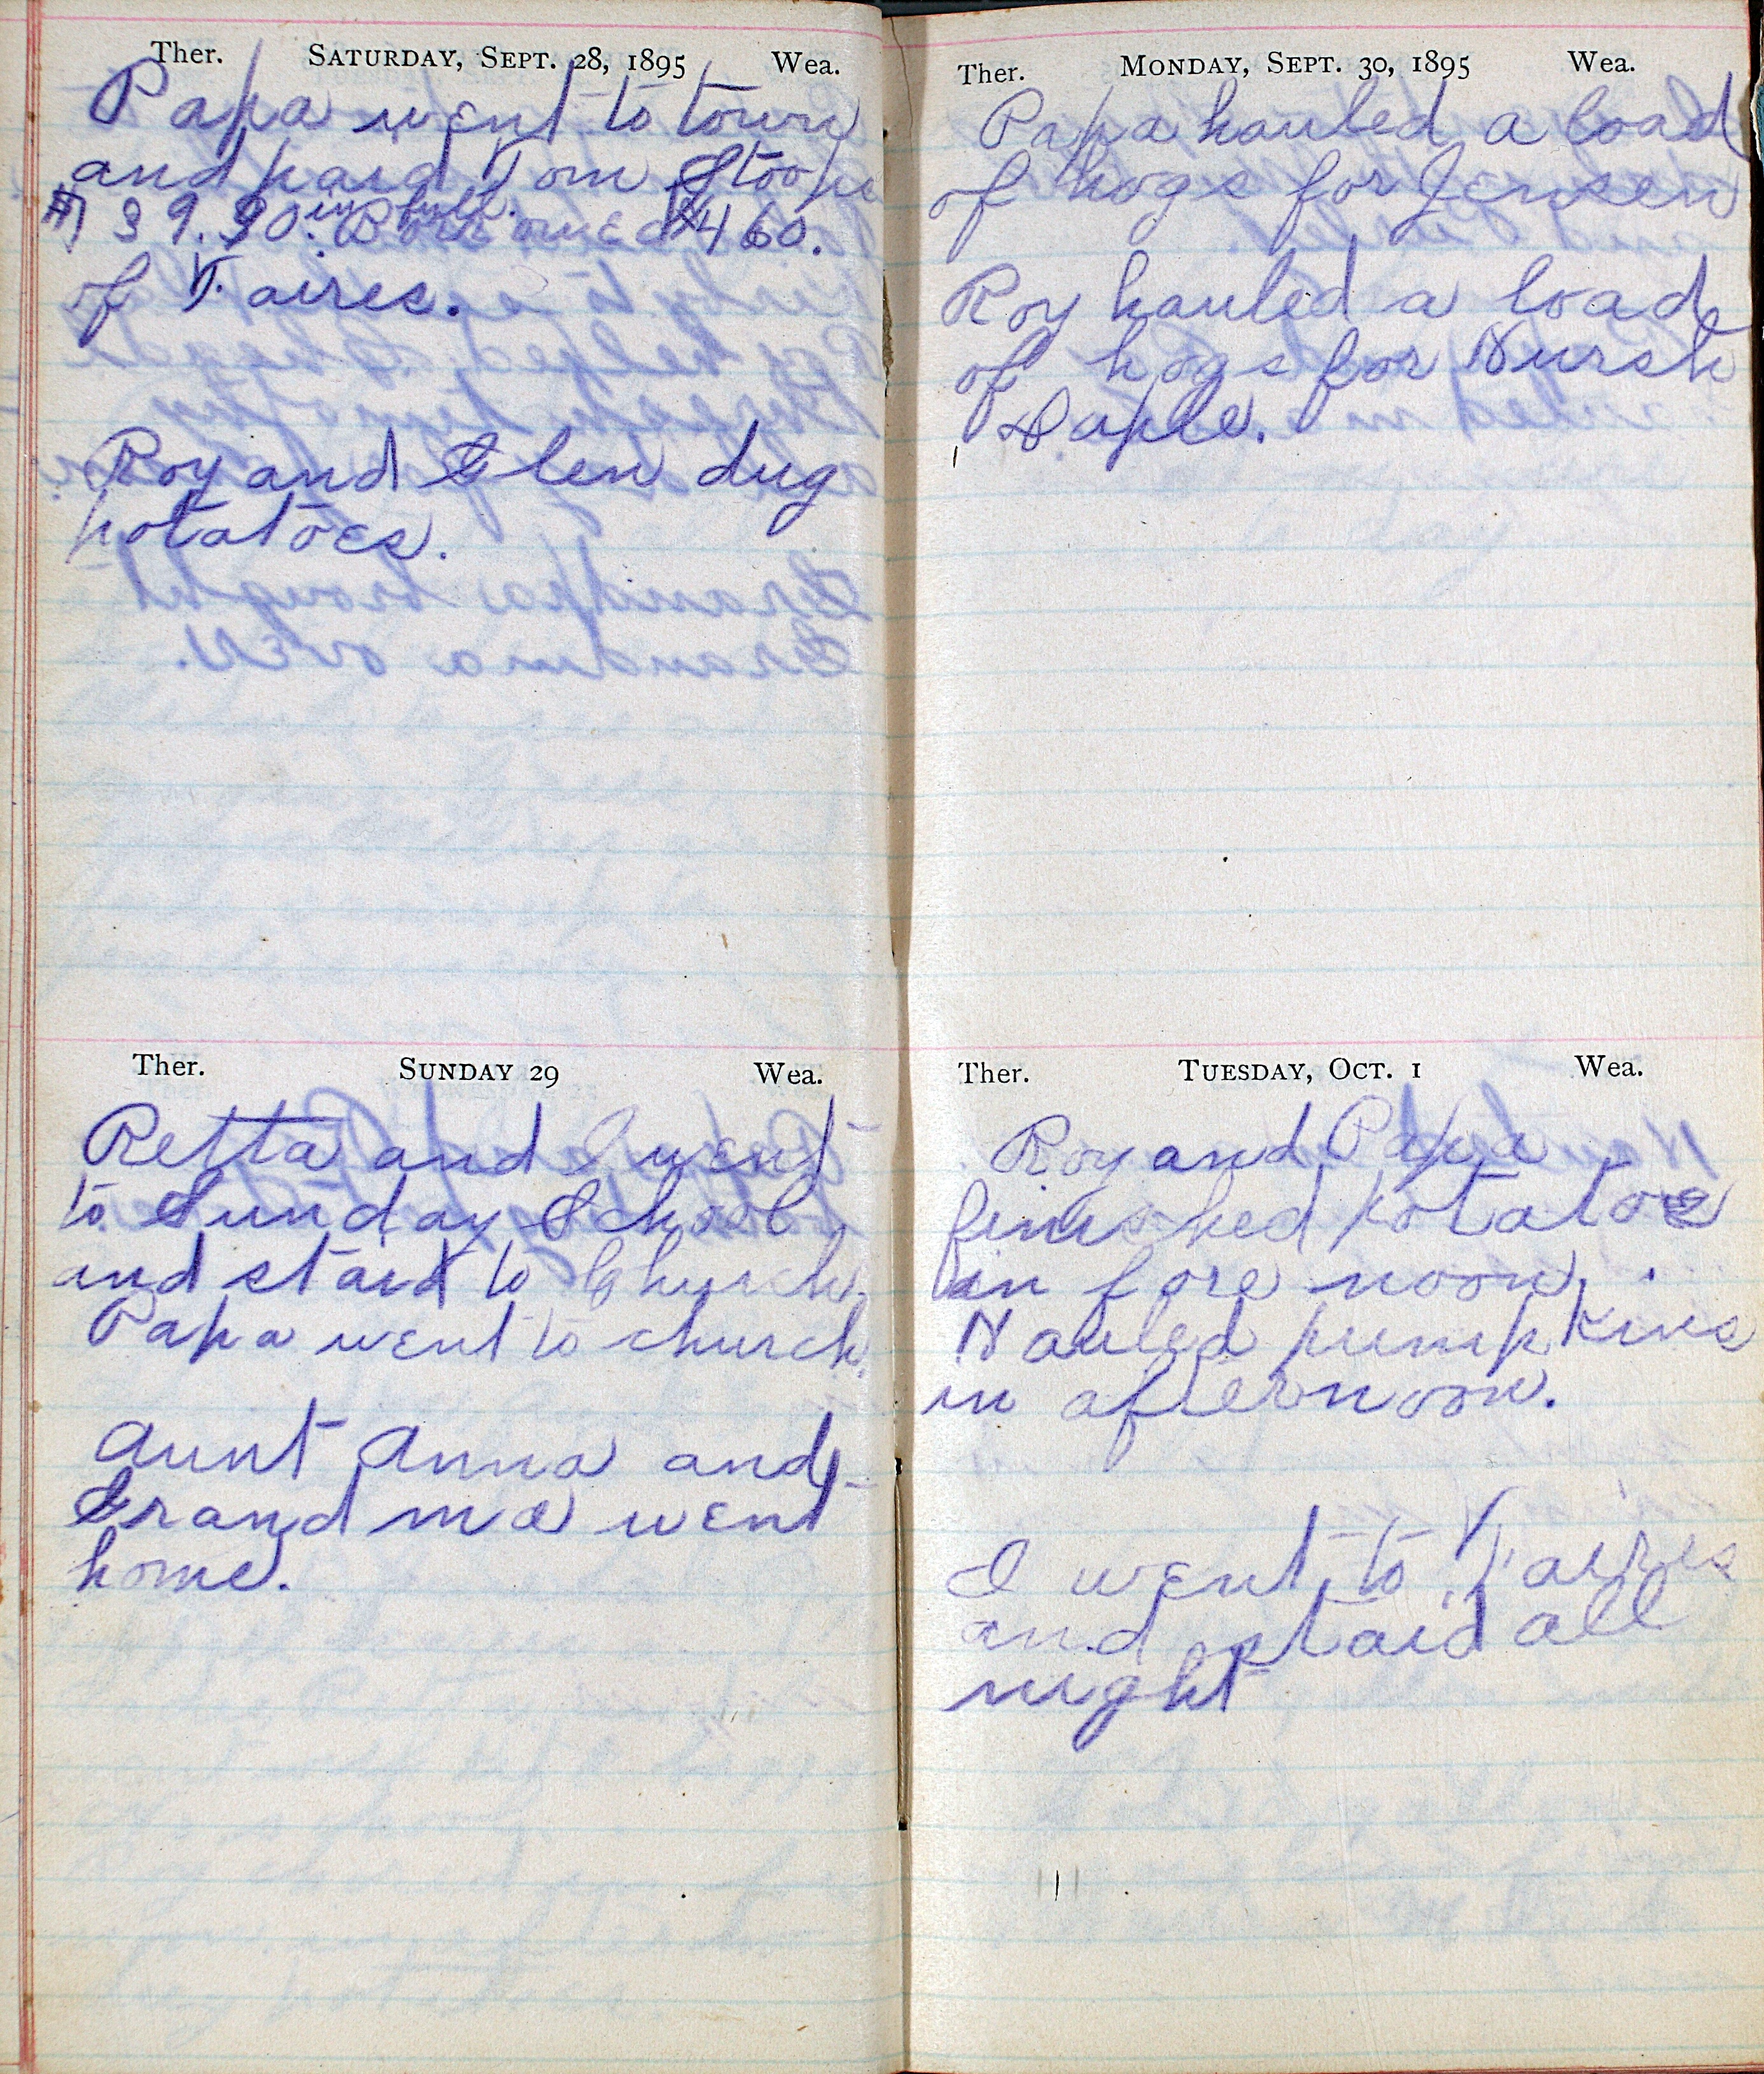 Ther. SATURDAY, SEPT. 28, 1895 Wea.
Papa went to town
and paid Tom Stoops
in full.
of T. aires.
Roy and Glen dug
potatoes.
Ther. SUNDAY 29 Wea.
Retta and I went
to Sunday School
and staid to Church.
Papa went to church.
Aunt Anna and
Grand ma went
home.
Ther. MONDAY, SEPT. 30, 1895 Wea.
Papa hauled a load
of hogs for Jensen
Roy hauled a load
of hogs for
Ther. TUESDAY, OCT. 1 Wea.
Roy and Papa
finished potatoes
in fore noon.
Hauled pumpkins
in afternoon.
I went to
and staid all
night